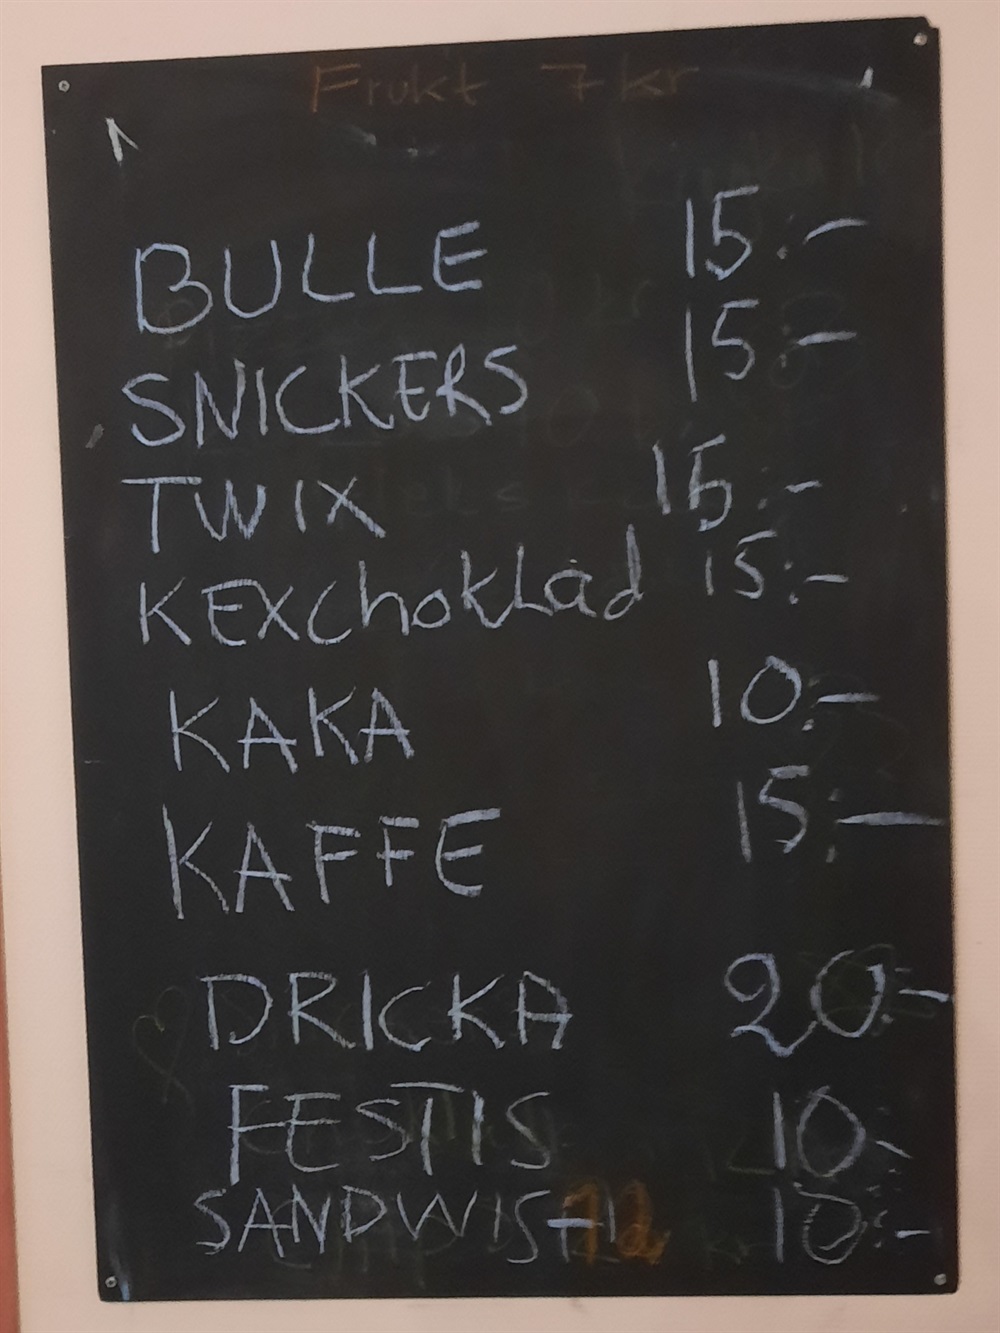 Frukt 7 kr
BULLE 15:-
SNICKERS 15:-
TWIX 15:-
KEXchokLad 15:-
KAKA 10:-
KAFFE 15:-
DRICKA 20:-
FESTIS 10:-
SANDWISH 10:-